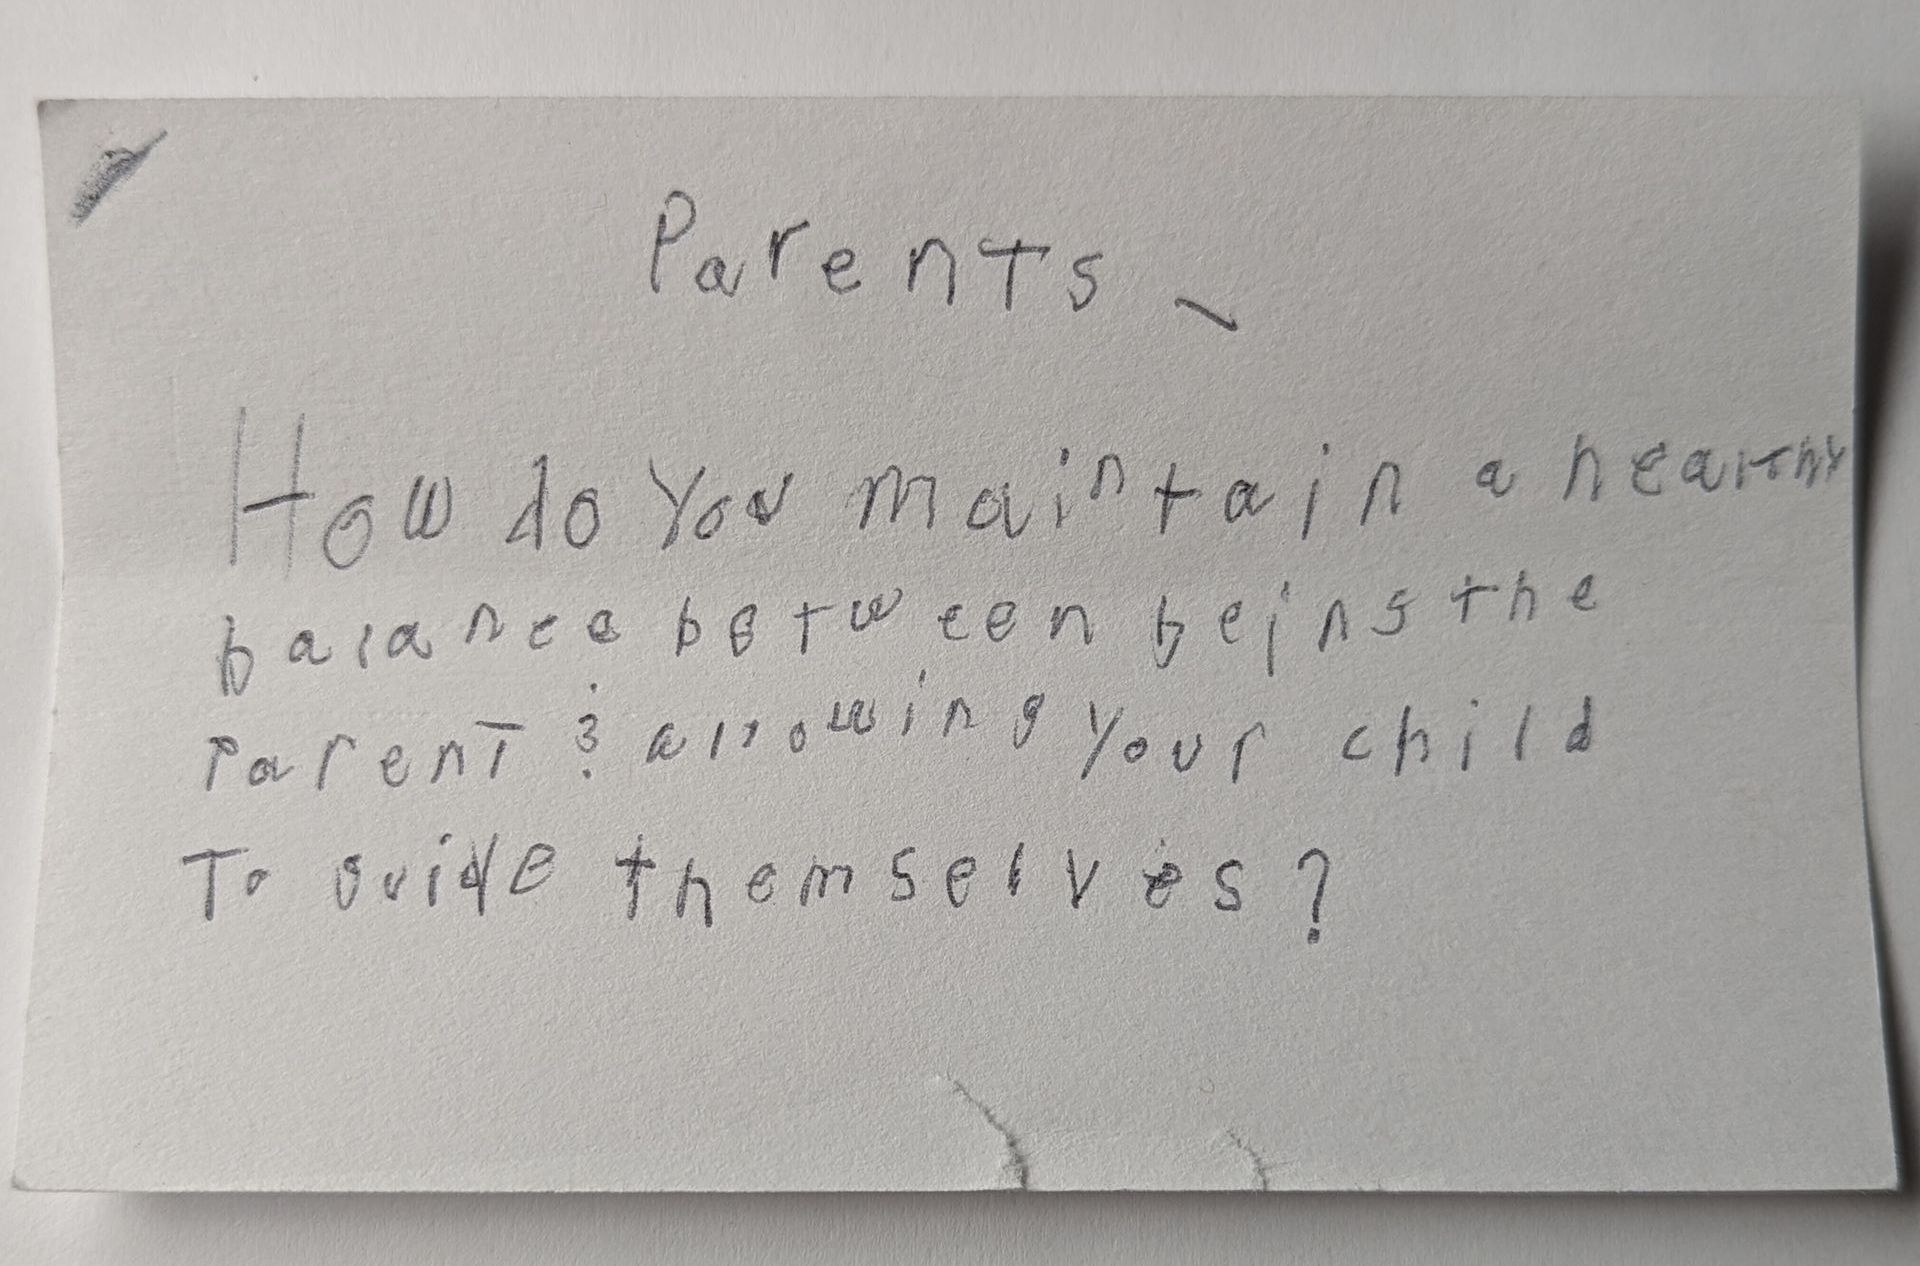 Parents -
How do you maintain a healthy
balance between being the
Parent & allowing your child
To guide themselves?